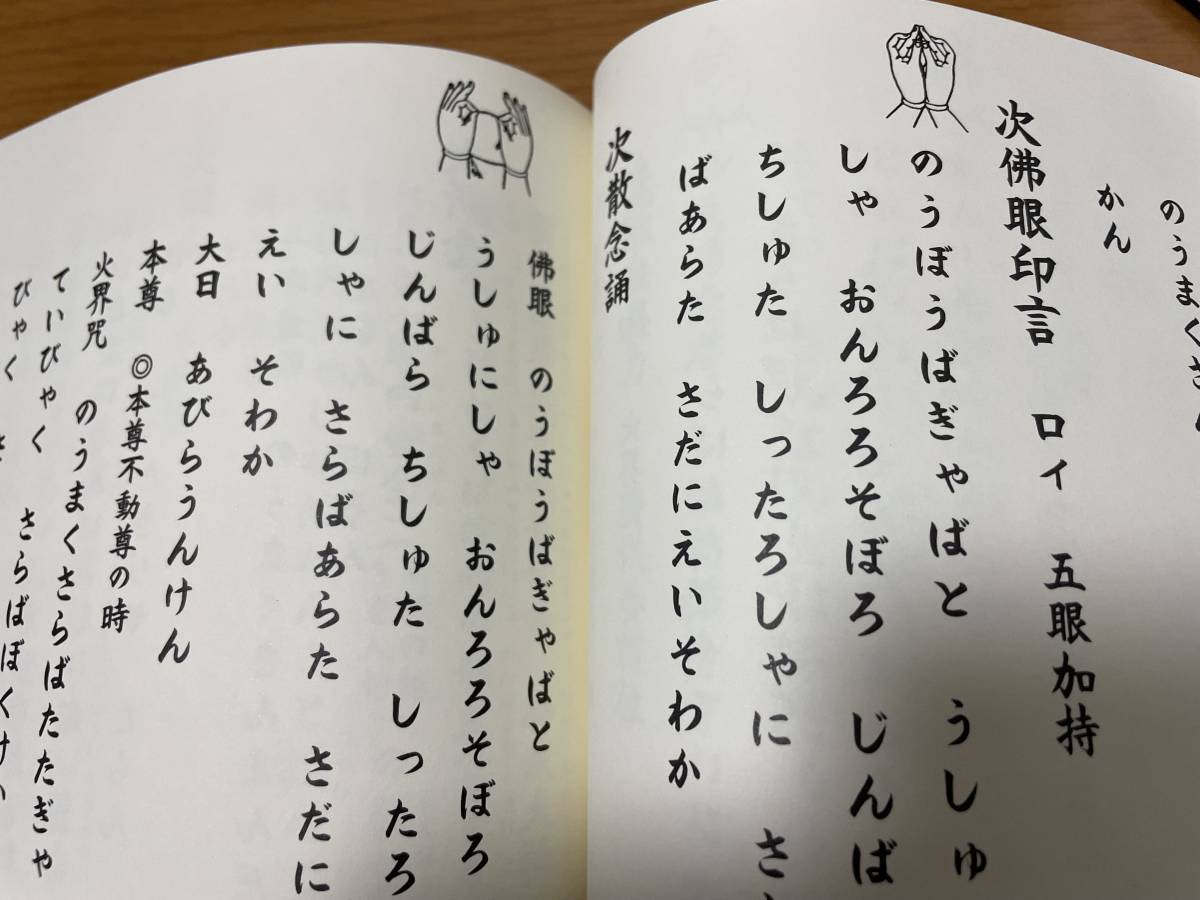 のうまくさん
かん
次佛眼印言 ロイ 五眼加持
のうぼうばぎゃばと うしゅ
しゃ おんろろそぼろ じんば
ちしゅた しったろしゃに さ
ばあらた さだにえいそわか
次散念誦
佛眼 のうぼうばぎゃばと
うしゅにしゃ おんろろそぼろ
じんばら ちしゅた しったろ
しゃに さらばあらた さだに
えい そわか
大日 あびらうんけん
本尊 ◎本尊不動尊の時
火界咒 のうまくさらばたたぎゃ
ていびゃく さらばぼくけい
びゃく さ